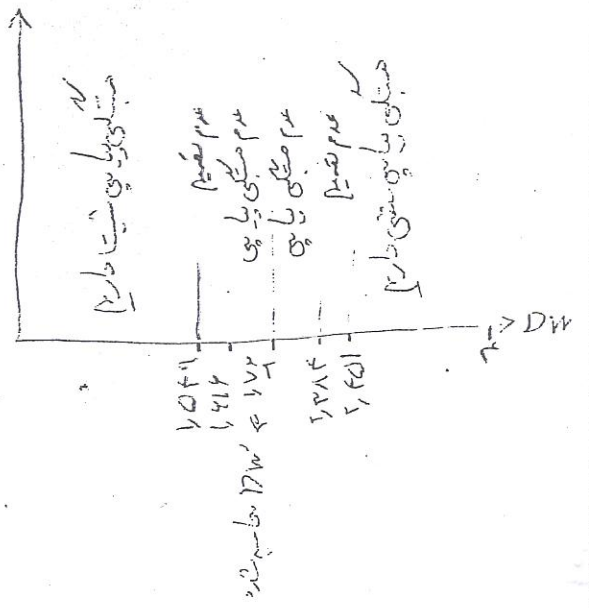 همبستگی پیاپی مثبت داریم
عدم تصمیم
عدم همبستگی پیاپی
عدم همبستگی پیاپی
عدم تصمیم
همبستگی پیاپی منفی داریم
۱٫۵۴۹
۱٫۶۱۶
۱٫۷۲
۲
۲٫۳۸۴
۲٫۴۵۱
۴
DW
DW محاسبه شده